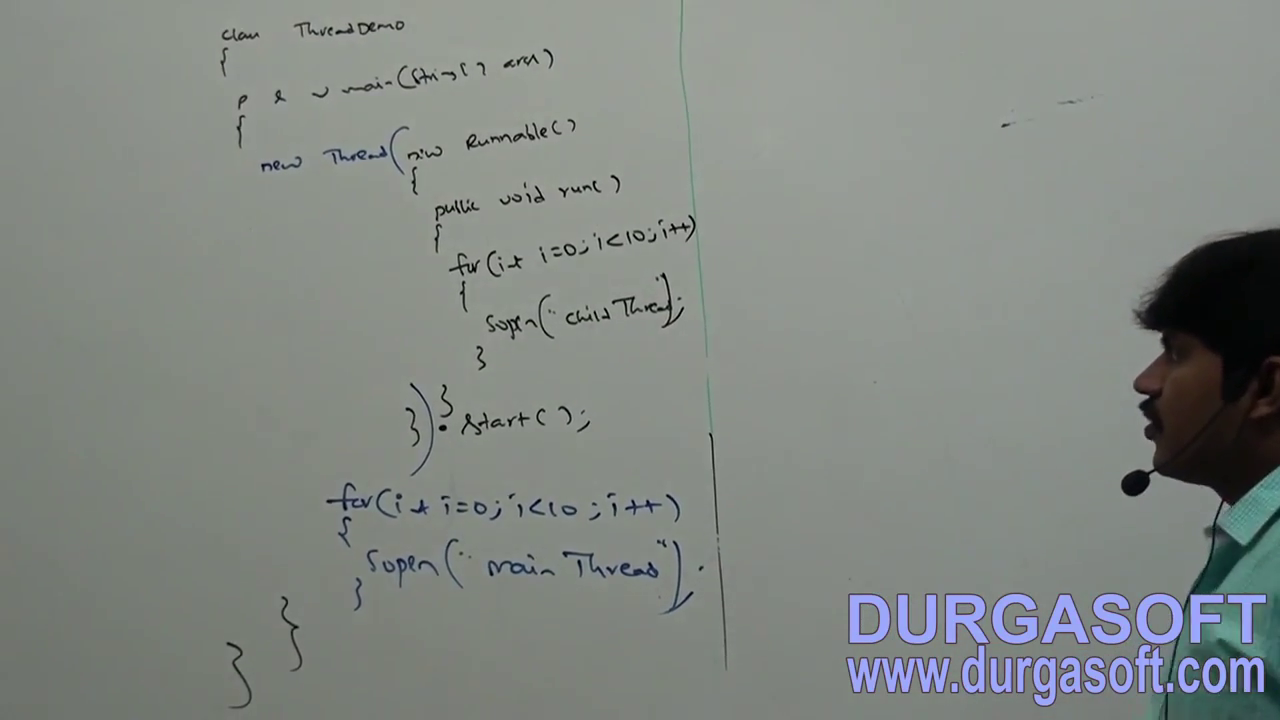 class ThreadDemo
{
p s v main(String[] args)
{
new Thread(new Runnable()
{
public void run()
{
for(int i=0; i<10; i++)
{
Sopln("child Thread");
}
}
}).start();
for(int i=0; i<10; i++)
{
Sopln("main Thread");
}
}
}
DURGASOFT
www.durgasoft.com